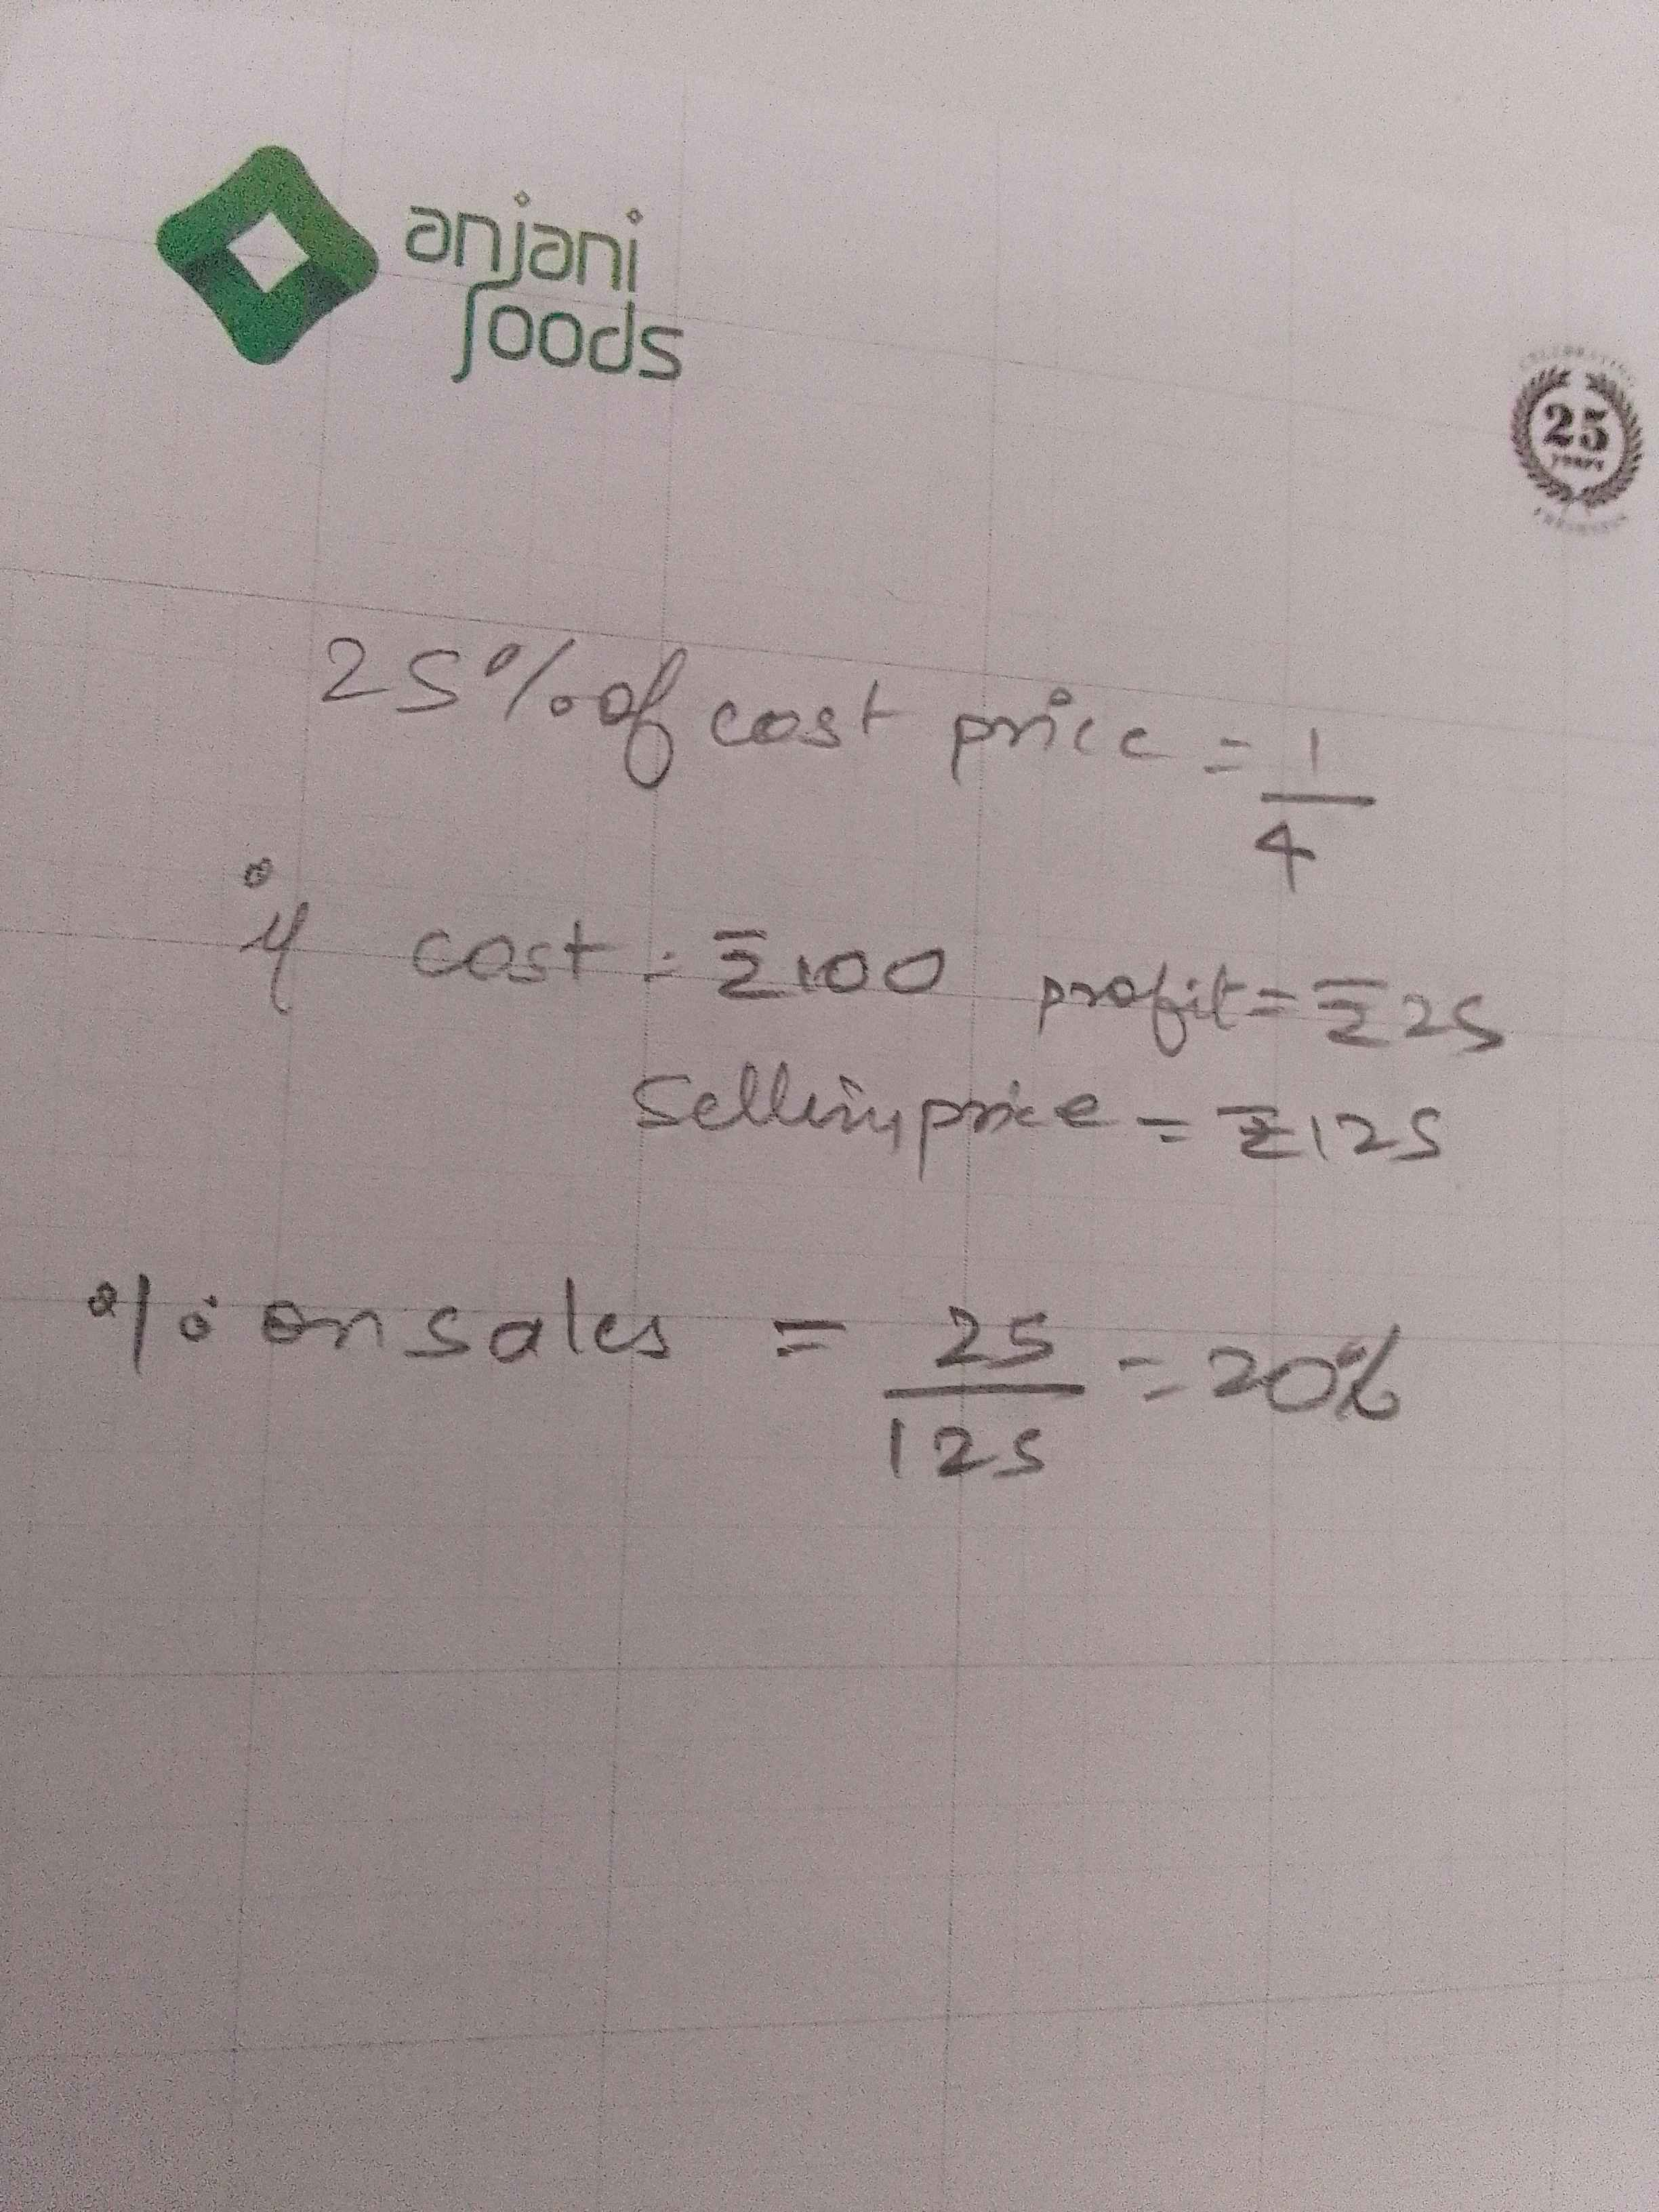 anjani
foods
25
YEARS
25% of cost price = 1/4
if cost = ₹100 profit = ₹25
Selling price = ₹125
% on sales = 25/125 = 20%